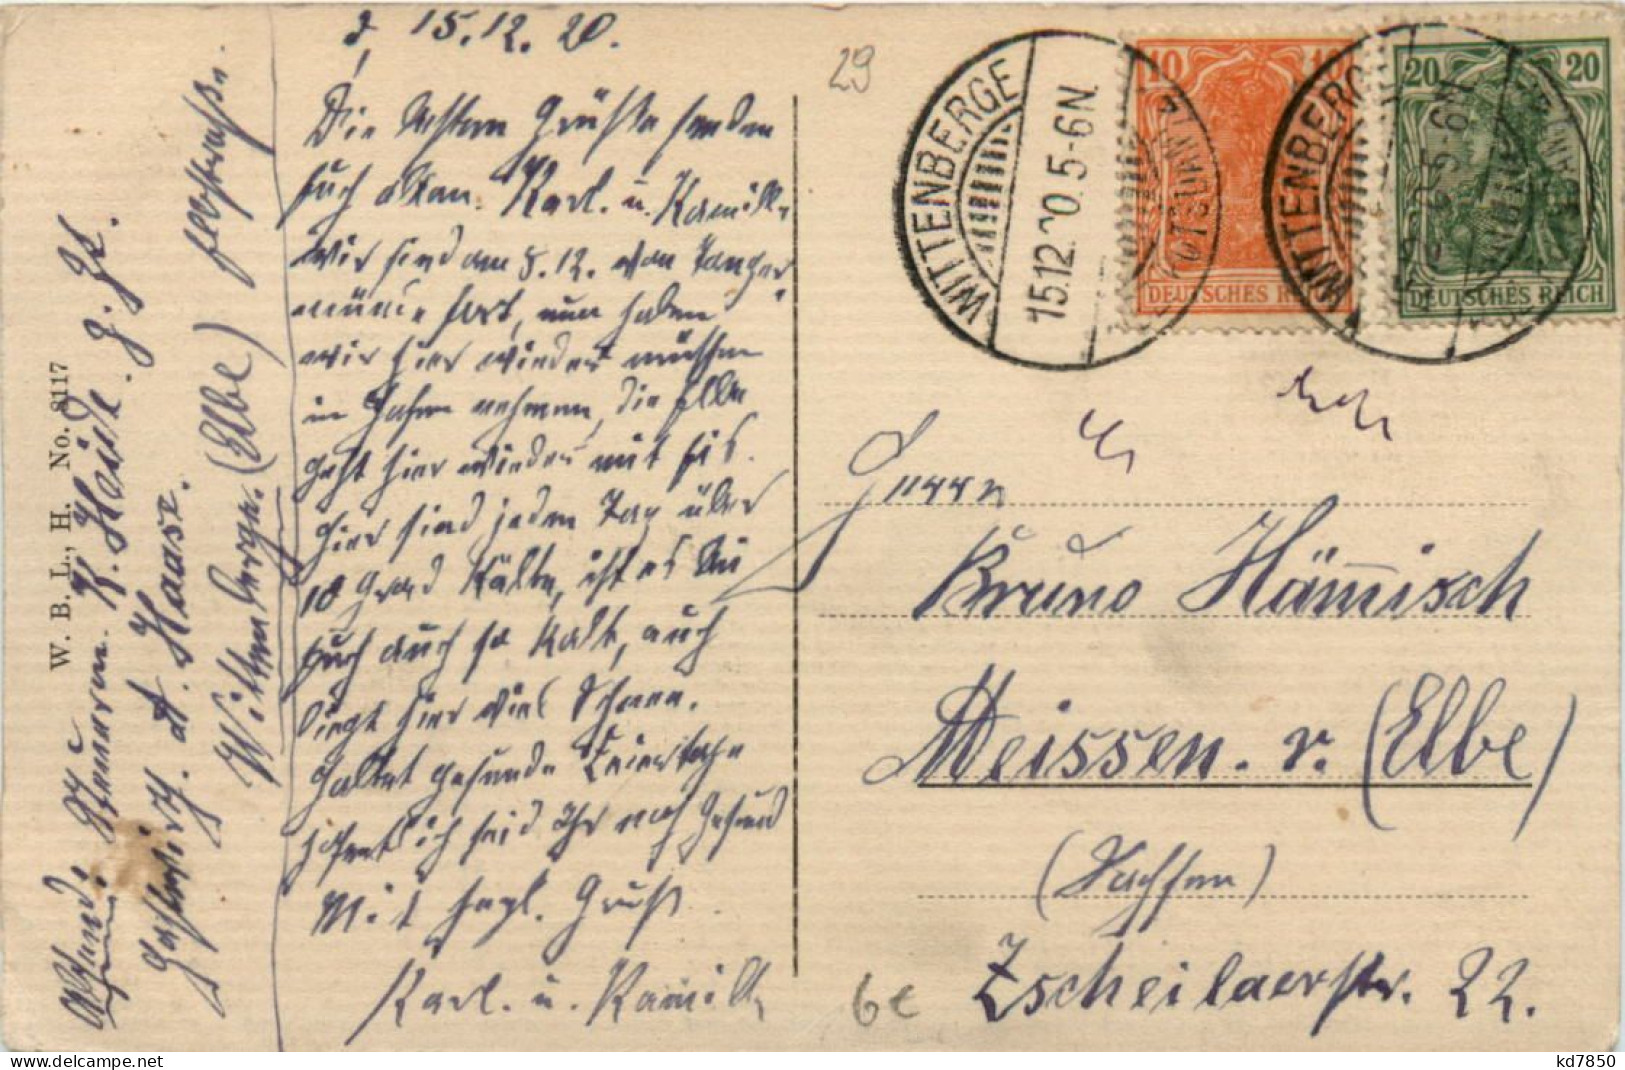 d, 15.12.20.
Die besten Grüße senden
Euch allen. Karl. u. Kamilla
wir sind am 5.12. von Tanger-
münde fort, nun haben
wir hier wieder
in nehmen, die Elbe
geht hier wieder mit Eis.
hier sind jeden Tag über
10 Grad Kälte, ist es bei
Euch auch so kalt, auch
liegt hier viel Schnee.
haltet gesunde Feiertage
hoffentlich seid Ihr noch Gesund
Mit herzl. Gruß
Karl. u. Kamilla
Absend. Steuerm. K. Heise. z. Zt.
Gastwirt. A. Haase.
Wittenberge. (Elbe)
Elbstraße.
W. B. L., H. No. 8117
29
WITTENBERGE
15.12.20.5-6N.
10 10
DEUTSCHES REICH
WITTENBERGE
20 20
DEUTSCHES REICH
Herrn
Bruno Hämisch
Meissen. v. (Elbe)
(Sachsen)
Zscheilaerstr. 22.
6e
kd7850